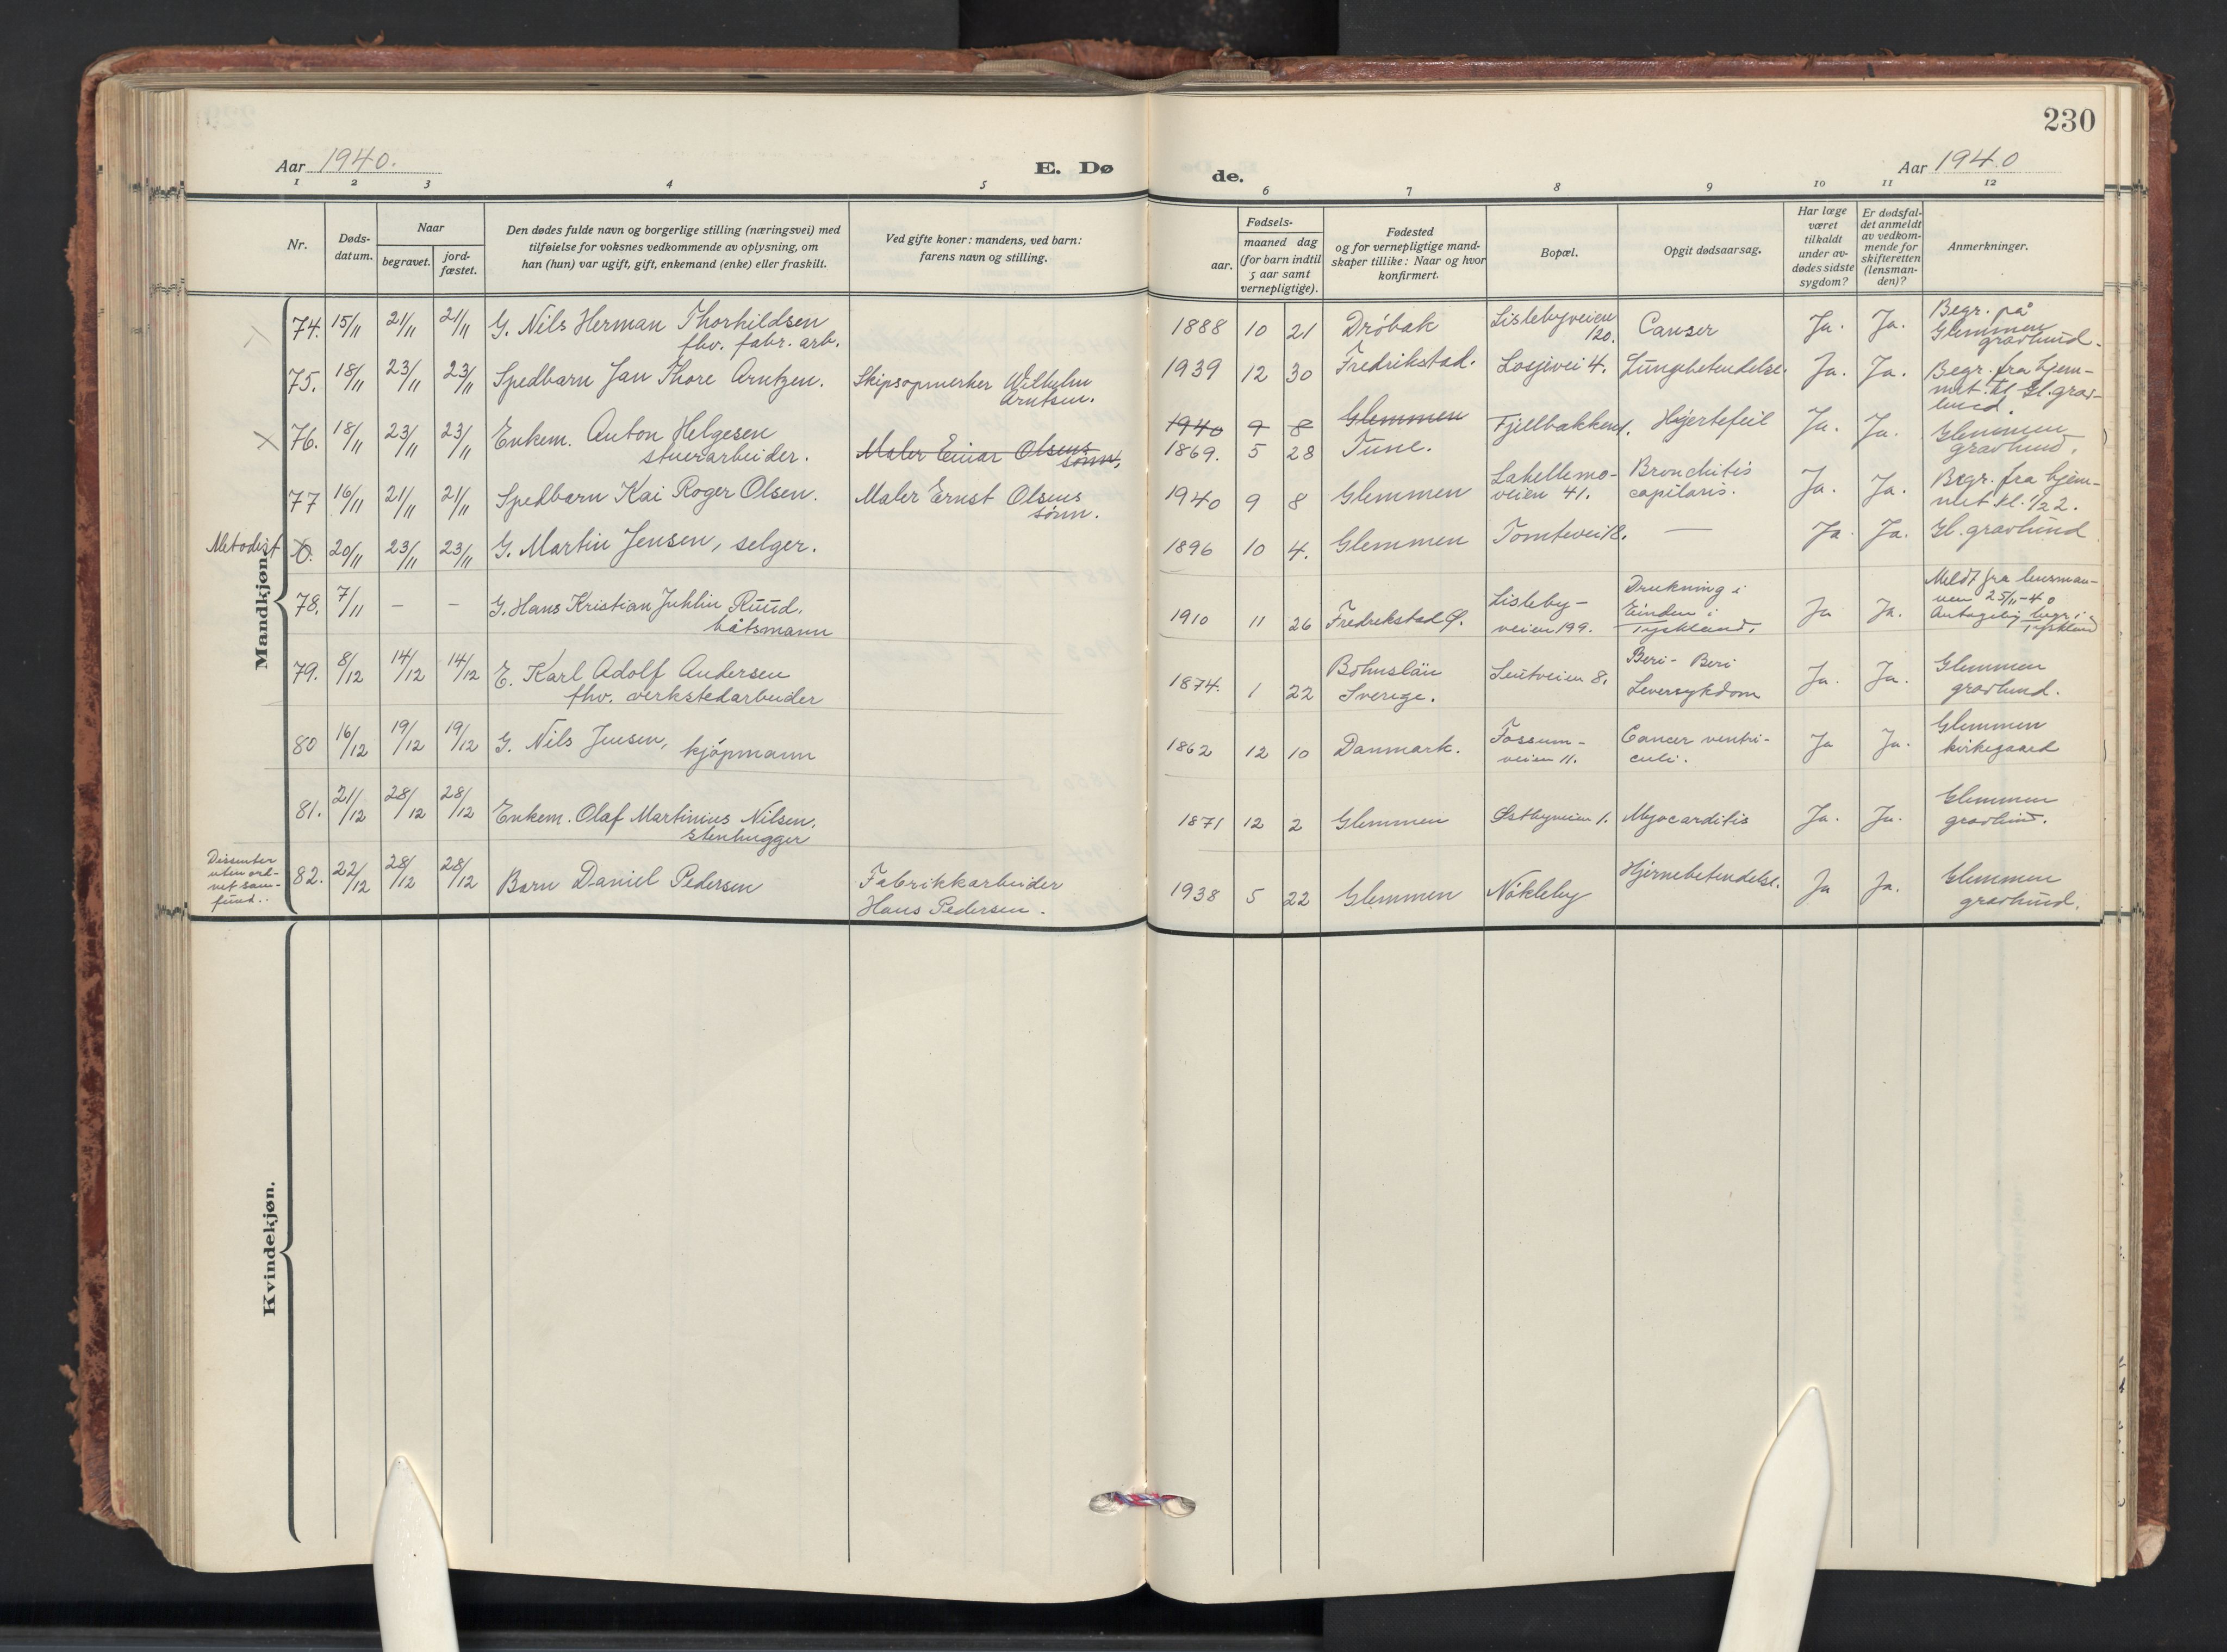 230
Aar 1940.
E. Dø
de.
Aar 1940
1 2 3 4 5 6 7 8 9 10 11 12
Nr.
Døds-
datum.
Naar
begravet.
jord-
fæstet.
Den dødes fulde navn og borgerlige stilling (næringsvei) med
tilføielse for voksnes vedkommende av oplysning, om
han (hun) var ugift, gift, enkemand (enke) eller fraskilt.
Ved gifte koner: mandens, ved barn:
farens navn og stilling.
Fødsels-
aar.
maaned dag
(for barn indtil
5 aar samt
vernepligtige).
Fødested
og for vernepligtige mand-
skaper tillike: Naar og hvor
konfirmert.
Bopæl.
Opgit dødsaarsag.
Har læge
været
tilkaldt
under av-
dødes sidste
sygdom?
Er dødsfal-
det anmeldt
av vedkom-
mende for
skifteretten
(lensman-
den)?
Anmerkninger.
Mandkjøn.
74. 15/11 21/11 21/11 G. Nils Herman Thorkildsen
fhv. fabr. arb.
1888 10 21 Drøbak Lislebyveien
120. Canser Ja. Ja. Begr. på
Glemmen
gravlund.
75. 18/11 23/11 23/11 Spedbarn Jan Thore Arntzen. Skipsopmerker Wilhelm
Arntsen.
1939 12 30 Fredrikstad. Losjevei 4. Lungebetendelse. Ja. Ja. Begr. fra hjem-
met. til Gl. grav-
lund.
X 76. 18/11 23/11 23/11 Enkem. Anton Helgesen
stuerarbeider. Maler Einar Olsens
sønn.
1940 9 8 Glemmen
1869. 5 28 Tune. Fjellbakken 1. Hjertefeil Ja. Ja. Glemmen
gravlund.
77 16/11 21/11 21/11 Spedbarn Kai Roger Olsen. Maler Ernst Olsens
sønn.
1940 9 8 Glemmen Lahellemo-
veien 41. Bronchitis
capilaris. Ja. Ja. Begr. fra hjem-
met kl. 1/2 2.
Metodist 0. 20/11 23/11 23/11 G. Martin Jensen, selger.
1896 10 4. Glemmen Tomtevei 18. — Ja. Ja. Gl. gravlund
78. 7/11 – – G. Hans Kristian Juhlin Ruud.
båtsmann
1910 11 26 Fredrikstad Ø. Lisleby-
veien 199. Drukning i
Einden i
Tyskland. Ja Ja. Meldt fra lensman-
nen 25/11-40
Antagelig begr. i
Tyskland
79. 8/12 14/12 14/12 E. Karl Adolf Andersen
fhv. verkstedarbeider
1874. 1 22 Bohuslän
Sverige. Leutveien 8. Beri-Beri
Leversykdom Ja. Ja. Glemmen
gravlund.
80 16/12 19/12 19/12 G. Nils Jensen, kjøpmann
1862 12 10 Danmark. Fossum-
veien 11. Cancer ventri-
culi. Ja Ja. Glemmen
kirkegaard
81. 21/12 28/12 28/12 Enkem. Olaf Martinius Nilsen.
stenhugger
1871 12 2 Glemmen Østbyveien 1. Myocarditis Ja. Ja. Glemmen
gravlund.
Dissenter
uten ord-
net sam-
fund.
82. 22/12 28/12 28/12 Barn Daniel Pedersen Fabrikkarbeider
Hans Pedersen.
1938 5 22 Glemmen Nøkleby Hjernebetendelse. Ja Ja. Glemmen
gravlund.
Kvindekjøn.